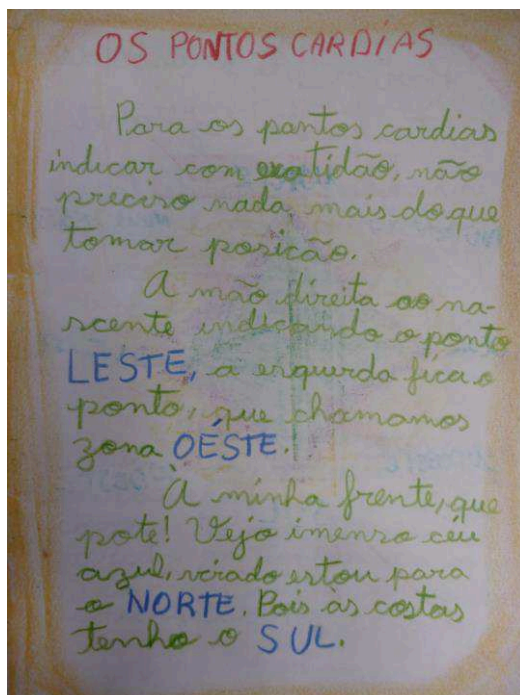 OS PONTOS CARDIAS
Para os pontos cardias
indicar com exatidão, não
preciso nada mais do que
tomar posicão.
A mão direita ao na-
scente indicando o ponto
LESTE, a esquerda fica o
ponto, que chamamos
zona OÉSTE.
À minha frente, que
pote! Vejo imenso céu
azul, virado estou para
o NORTE. Pois às costas
tenho o SUL.